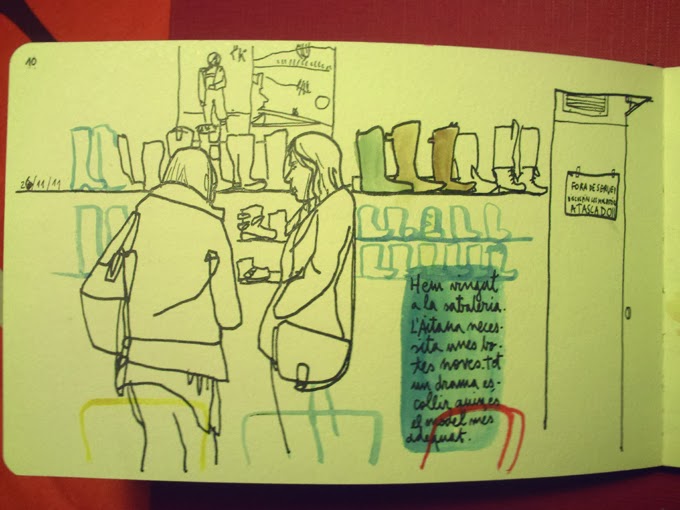 10
26/11/11
FORA DE SERVEI
DISCULPIN LES MOLÈSTIES
ATASCADO!
Hem vingut
a la sabateria.
L'Aitana neces-
sita unes bo-
tes noves. tot
un drama es-
collir quin és
el model més
adequat.